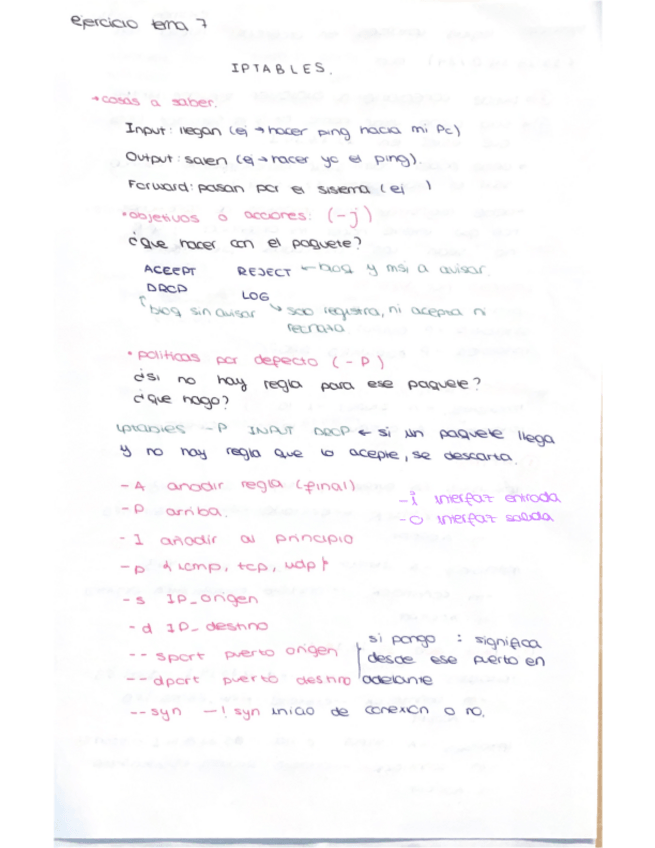 ejercicio tema 7
IPTABLES.
→cosas a saber.
Input: llegan (ej → hacer ping hacia mi Pc)
Output: salen (ej → hacer yo el ping).
Forward: pasan por el sistema (ej )
•objetivos ó acciones: (-j)
¿Que hacer con el paquete?
ACEEPT REJECT ← bloq y msj a avisar.
DROP LOG
bloq sin avisar solo registra, ni acepta ni
rechaza
•politicas por defecto (-P)
¿si no hay regla para ese paquete?
¿que hago?
iptables -P INPUT DROP ← si un paquete llega
y no hay regla que lo acepte, se descarta.
-A anadir regla (final)
-P arriba.
-i interfaz entrada
-o interfaz salida
-I añadir al principio
-p {icmp, tcp, udp}
-s IP_origen
-d IP_destino
--sport puerto origen
--dport puerto destino
si pongo : significa
desde ese puerto en
adelante
--syn —! syn inicio de conexion o no.